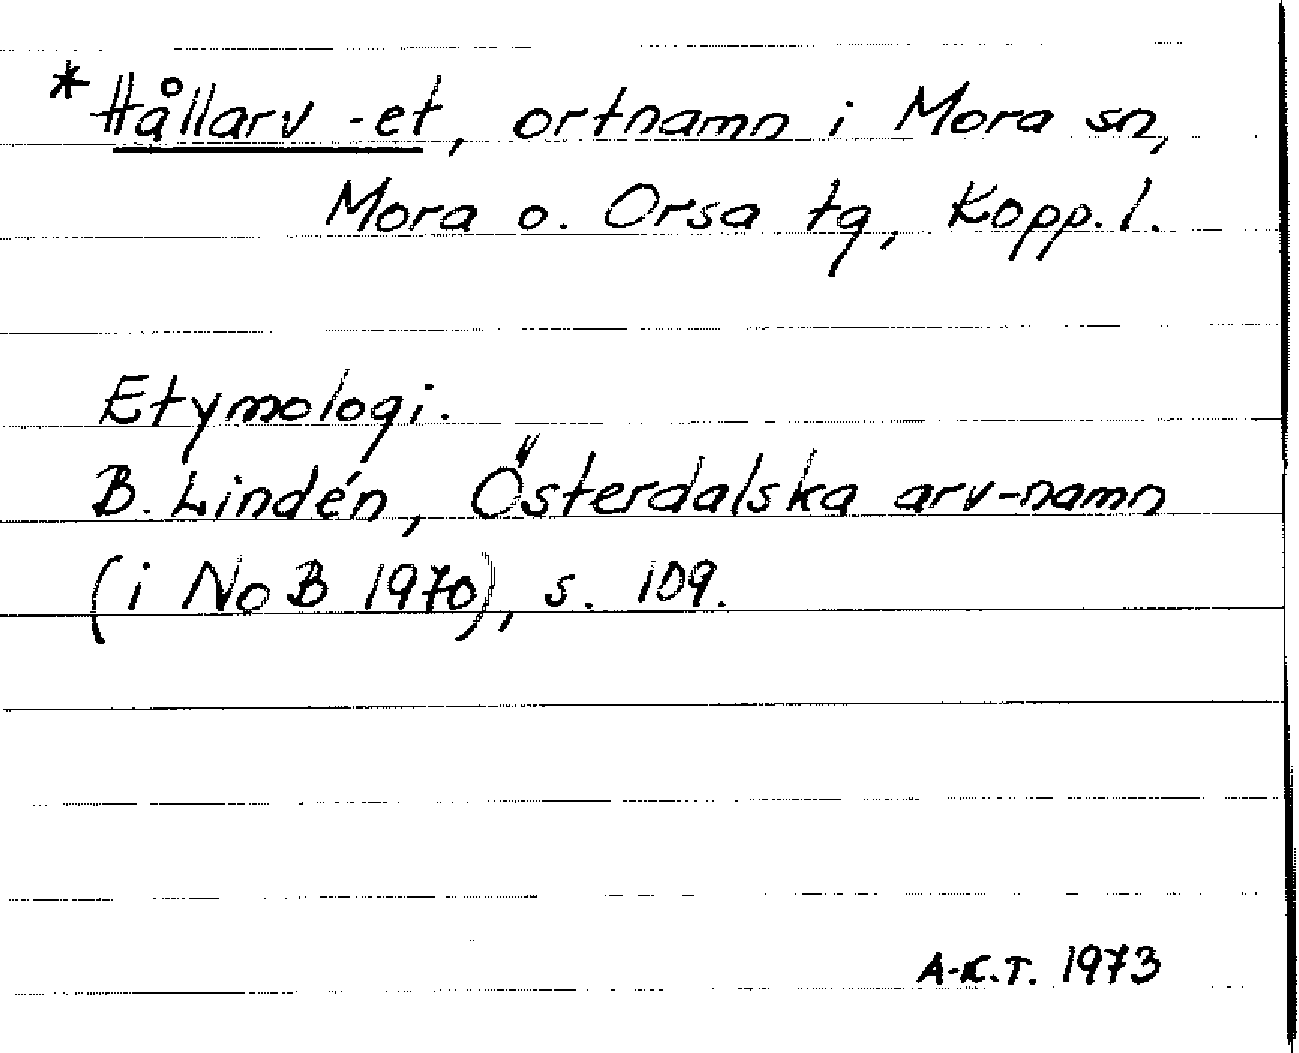 *Hållarv -et, ortnamn i Mora sn,
Mora o. Orsa tg, Kopp. l.
Etymologi.
B. Lindén, Österdalska arv-namn
(i NoB 1970), s. 109.
A-K.T. 1973